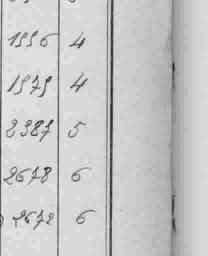 1996 4
1979 4
2387 5
2678 6
2672 6